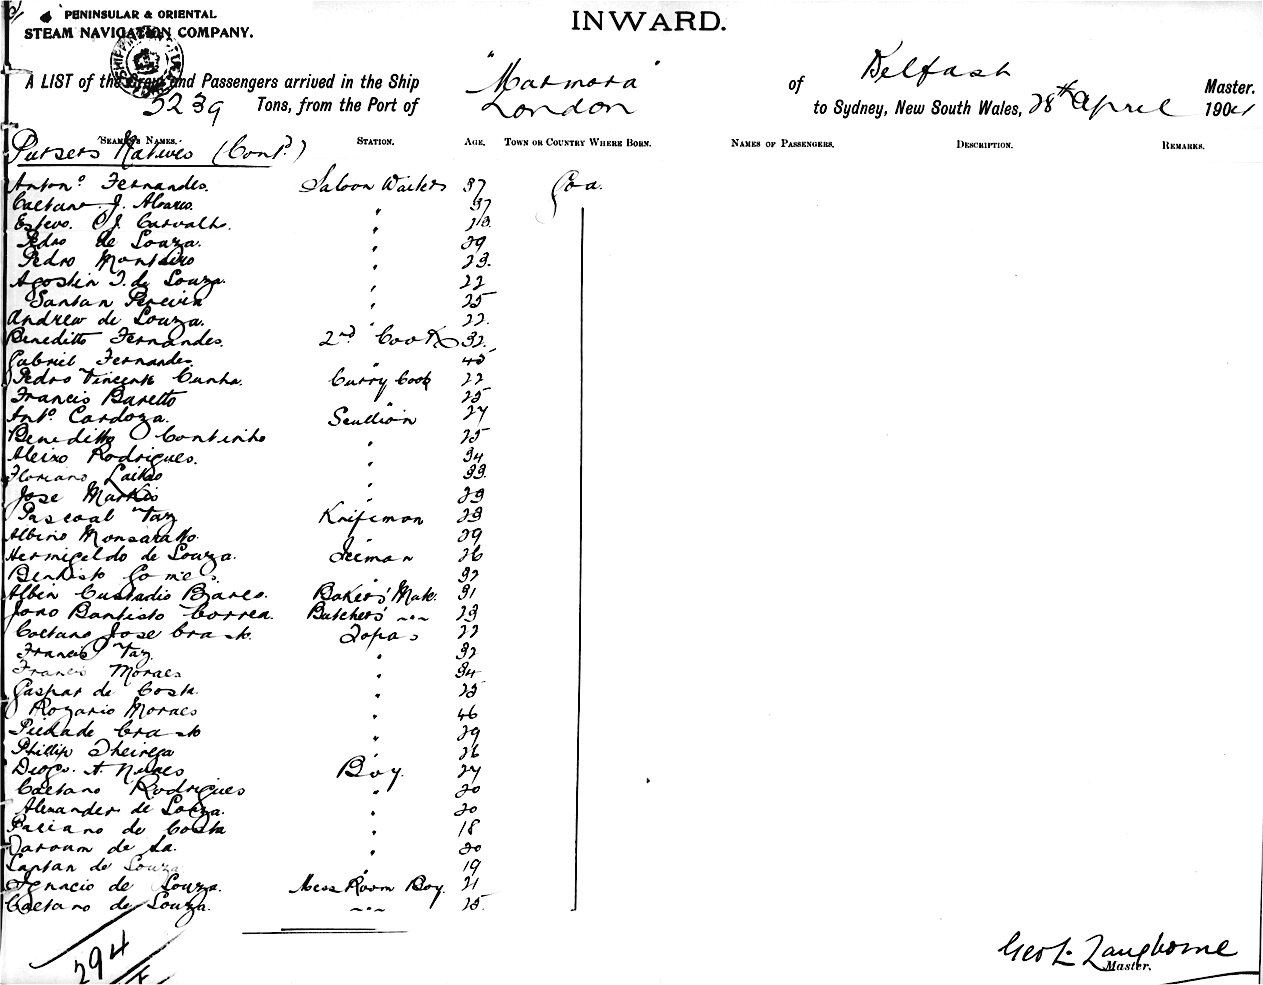 PENINSULAR & ORIENTAL
STEAM NAVIGATION COMPANY.
INWARD.
A LIST of the Crew and Passengers arrived in the Ship "Marmora" of Belfast Master.
5239 Tons, from the Port of London to Sydney, New South Wales, 28th April 1904
SEAMEN'S NAMES. STATION. AGE. TOWN OR COUNTRY WHERE BORN. NAMES OF PASSENGERS. DESCRIPTION. REMARKS.
Pursers Natives (Contd)
Antono Fernandes. Saloon Waiters 37 Goa.
Caetano J. Alvares. " 37
Estevo C J. Carvalho. "
Pedro de Souza. " 29
Pedro Monteiro " 23.
Agostin I. de Souza. " 22
Santan Pereira " 25
Andrew de Souza. " 22.
Beneditto Fernandes. 2nd Cook 32.
Gabriel Fernandes. " 45
Pedro Vincente Cunha. Curry Cook 22
Francis Baretto " 25
Anto Cardoza. Scullion 27
Beneditto Continho " 25
Aleixo Rodrigues. " 34
Floriano " 33.
Jose " 23
Pascoal Vaz Knifeman 23
Albino " 29
Hermigeldo de Souza. Iceman 26
Gomes. " 32
Albin Custadio Bakers' Mate. 31
Joao Bautisto Correa. Butchers' -"- 23
Caetano Jose Crasto. Topas 22
Francis Vaz " 32
Francis Moraes " 34
Gaspar de Costa. " 25
Rozario Moraes " 46
Piedade Crasto " 29
Phillip " 26
Diogo. A. Nunes Boy. 27
Caetano Rodrigues " 20
Alexander de Souza. " 20
de Costa " 18
de Sa. " 20
Santan de Souza " 19
Ignacio de Souza. Mess Room Boy. 21
Caetano de Souza. -"- 25.
294
Geo L. Langborne
Master.